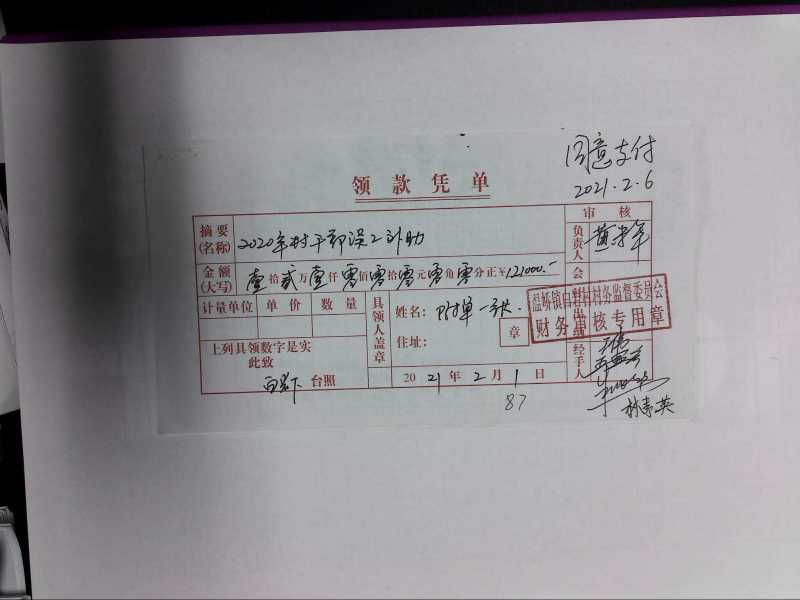 同意支付
2021.2.6
领款凭单
摘要(名称) 2020年村干部误工补助
审核
负责人
金额(大写) 壹拾贰万壹仟零佰零拾零元零角零分正¥121000.-
会
计量单位 单价 数量
具领人盖章
姓名: 附单一张.
住址:
章
温桥镇 村村务监督委员会
财务审核专用章
上列具领数字是实
此致
台照
2021年2月1日
经手人
林素英
87